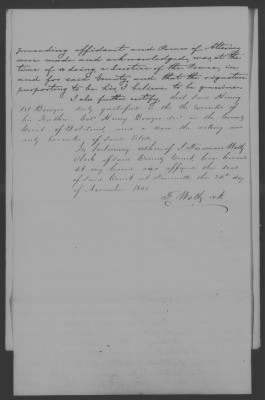 preceding affidavit and Power of Attorney
were made and acknowledged, was at the
time of so doing a Justice of the Peace, in
and for said County and that the signature
purporting to be his, I believe to be genuine.
I also further certify, that said Henry
M Bowyer duly qualified as the Executor of
his Father Col Henry Bowyer decd in the County
Court of Botetourt and is now the acting and
only Executor of said Estate.
In testimony whereof I Ferdinand Woltz
Clerk of said County Court, have hereunto
set my hand and affixed the seal
of said Court at Fincastle this 26th day
of November
F. Woltz clk